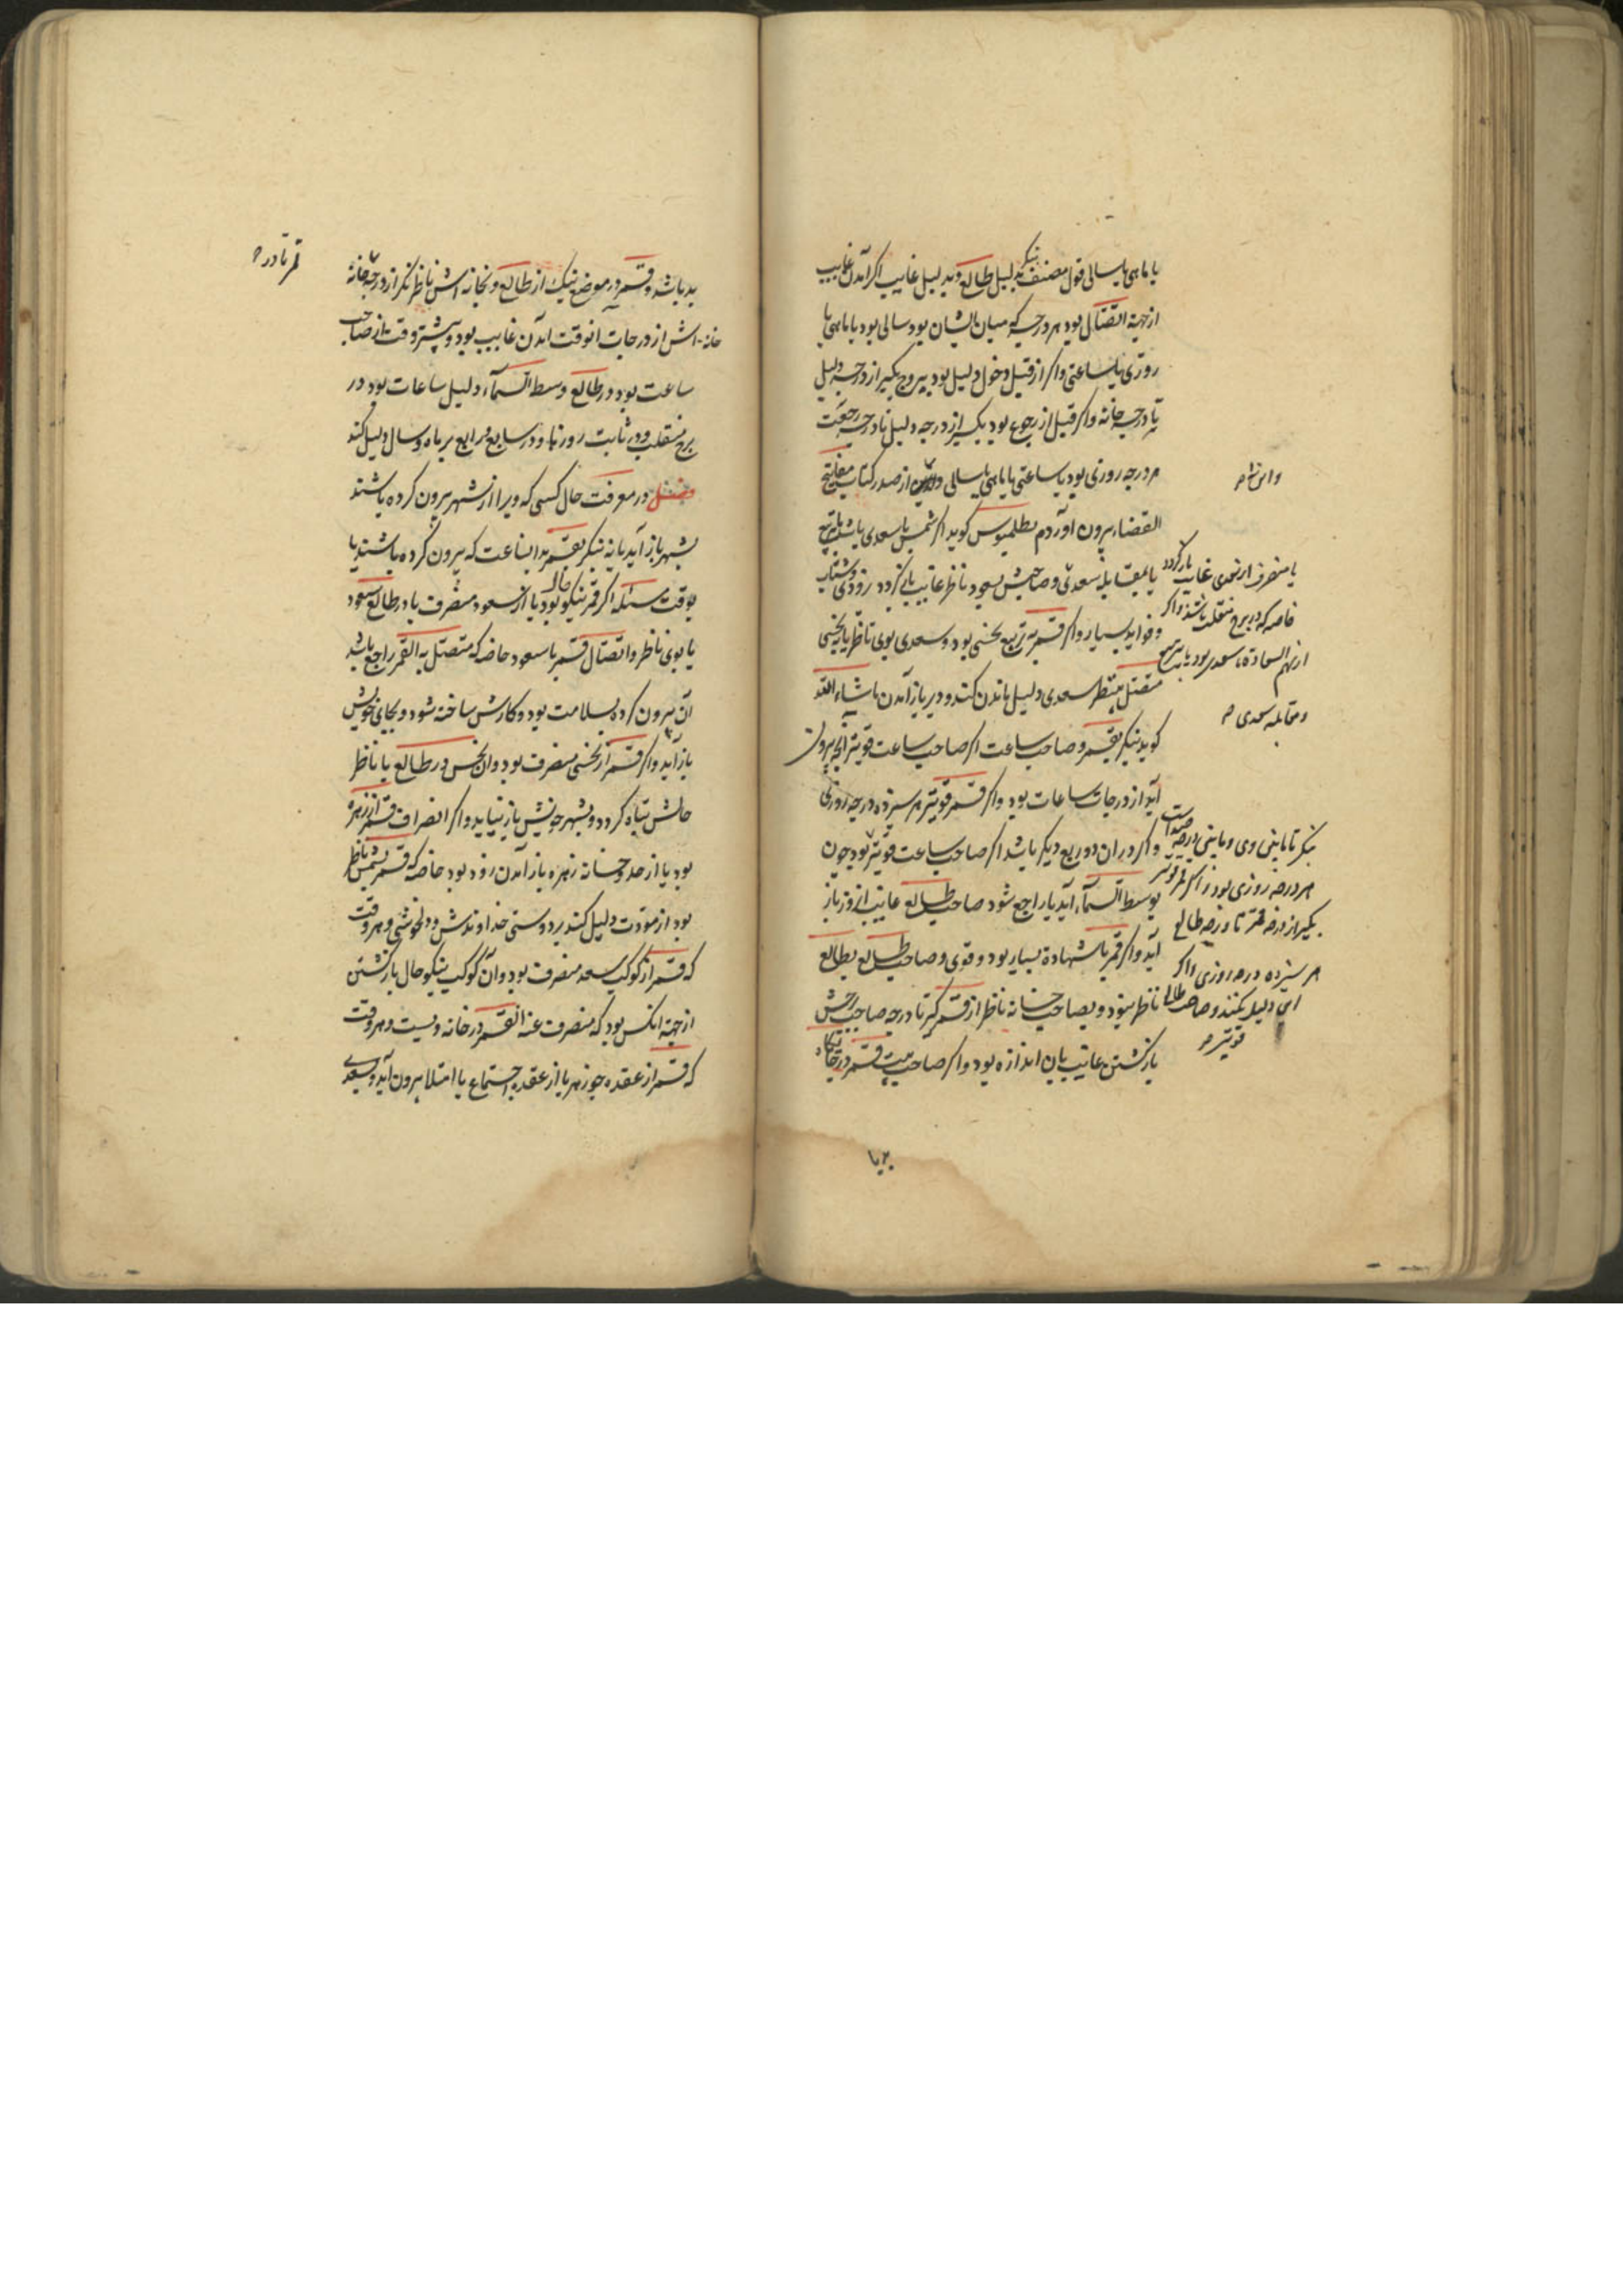 یا ماهی یا سالی قول مصنف بنگر بدلیل طالع و بدلیل غایب اکر آمدن غایب
از جهة اتصال بود هر درجه که میان ایشان بود سالی بود یا ماهی یا
روزی یا ساعتی واکر از قبل دخول دلیل بود ببروج بکیر از درجه دلیل
تا درجه خانه واکر قبل از رجوع بود بکیر از درجه دلیل تا درجه رجعت
هر درجه روزی بود یا ساعتی یا ماهی یا سالی از صدر کتاب مفاتیح
القضاء بیرون آوردم بطلمیوس کوید اکر شمس با سعدی باشد بتربیع
یا بمقابله سعدی و صاحبش بسعود ناظر غایب باز کردد زودی و شتاب
و فواید بسیار واکر قمر بتربیع نحسی بود و سعدی بوی ناظر یا بنحسی
متصل بنظر سعدی دلیل ماندن کند و دیر باز آمدن ماشاء الله
کوید بنکر بقمر و صاحب ساعت اکر صاحب ساعت قویتر انچه بیرون
آید از درجات ساعات بود واکر قمر قویتر هر سیزده درجه روزی
واکر در ان دو ربع دیکر باشد اکر صاحب ساعت قویتر بود چون
بوسط السماء آید یا راجع شود صاحب طالع غایب انروز باز
آید واکر قمر با شهادة بسیار بود و قوی و صاحب طالع بطالع
ناظر نبود و بصاحب خانه ناظر از قمر کیر تا درجه صاحب برجش
باز کشتن غایب بان اندازه بود واکر صاحب بیت قمر در جایکاه
یا منصرف از سعدی غایب باز کردد
خاصه که در برج منقلب باشد واکر
از سهم السعادة با سعدی بود یا بتربیع
و مقابله سعدی
بنکر تا مابین وی و مابین درجه
هر درجه روزی بود و اکر قمر قویتر
بکیر از درجه قمر تا درجه طالع
هر سیزده درجه روزی و اکر
این دلیل نکنند و صاحب طالع
قویتر
بد باشد
بد باشد و قمر در موضع نیک از طالع و بخانه اش ناظر بنکر از درجه خانه
خانه اش از درجات انوقت آمدن غایب بود و بیشتر وقت از صاحب
ساعت بود در طالع و وسط السماء دلیل ساعات بود در
برج منقلب و در ثابت روزها و در سابع و رابع بر ماه و سال دلیل کند
فصل در معرفت حال کسی که ویرا از شهر بیرون کرده باشند
بشهر باز آید یا نه بنکر بقمر بدانساعت که بیرون کرده باشند یا
بوقت مسئله اکر قمر نیکو حال بود یا از سعود منصرف یا در طالع سعود
یا بوی ناظر و اتصال قمر با سعود خاصه که متصل به القمر راجع باشد
آن بیرون کرده بسلامت بود و کارش ساخته شود و بجای خویش
باز آید واکر قمر از نحسی منصرف بود وان نحس در طالع یا ناظر
حالش تباه کردد و بشهر خویش باز نیاید واکر انصراف قمر از زهره
بود یا از حد و خانه زهره باز آمدن زود بود خاصه که قمر بشمس ناظر
بود از مودت دلیل کند بر دوستی خداوندش و دلخوشی و هر وقت
که قمر از کوکب سعد منصرف بود و آن کوکب نیکو حال باز کشتن
از جهة انکس بود که منصرف عنه القمر در خانه ویست و هر وقت
که قمر از عقده جوزهر یا از عقده اجتماع یا امتلا بیرون آید و بسعدی
قمر تا درجه